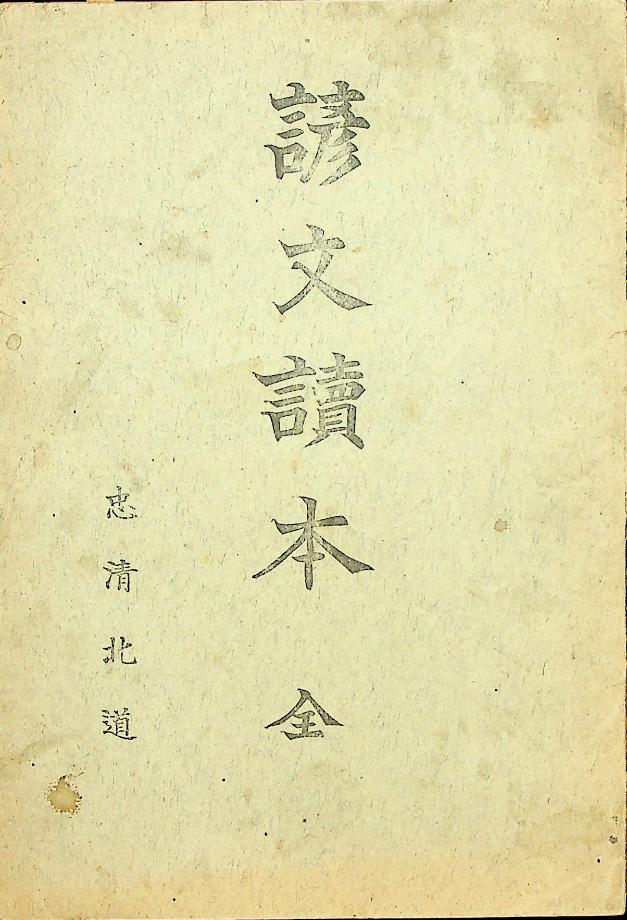 諺文讀本 全
忠淸北道